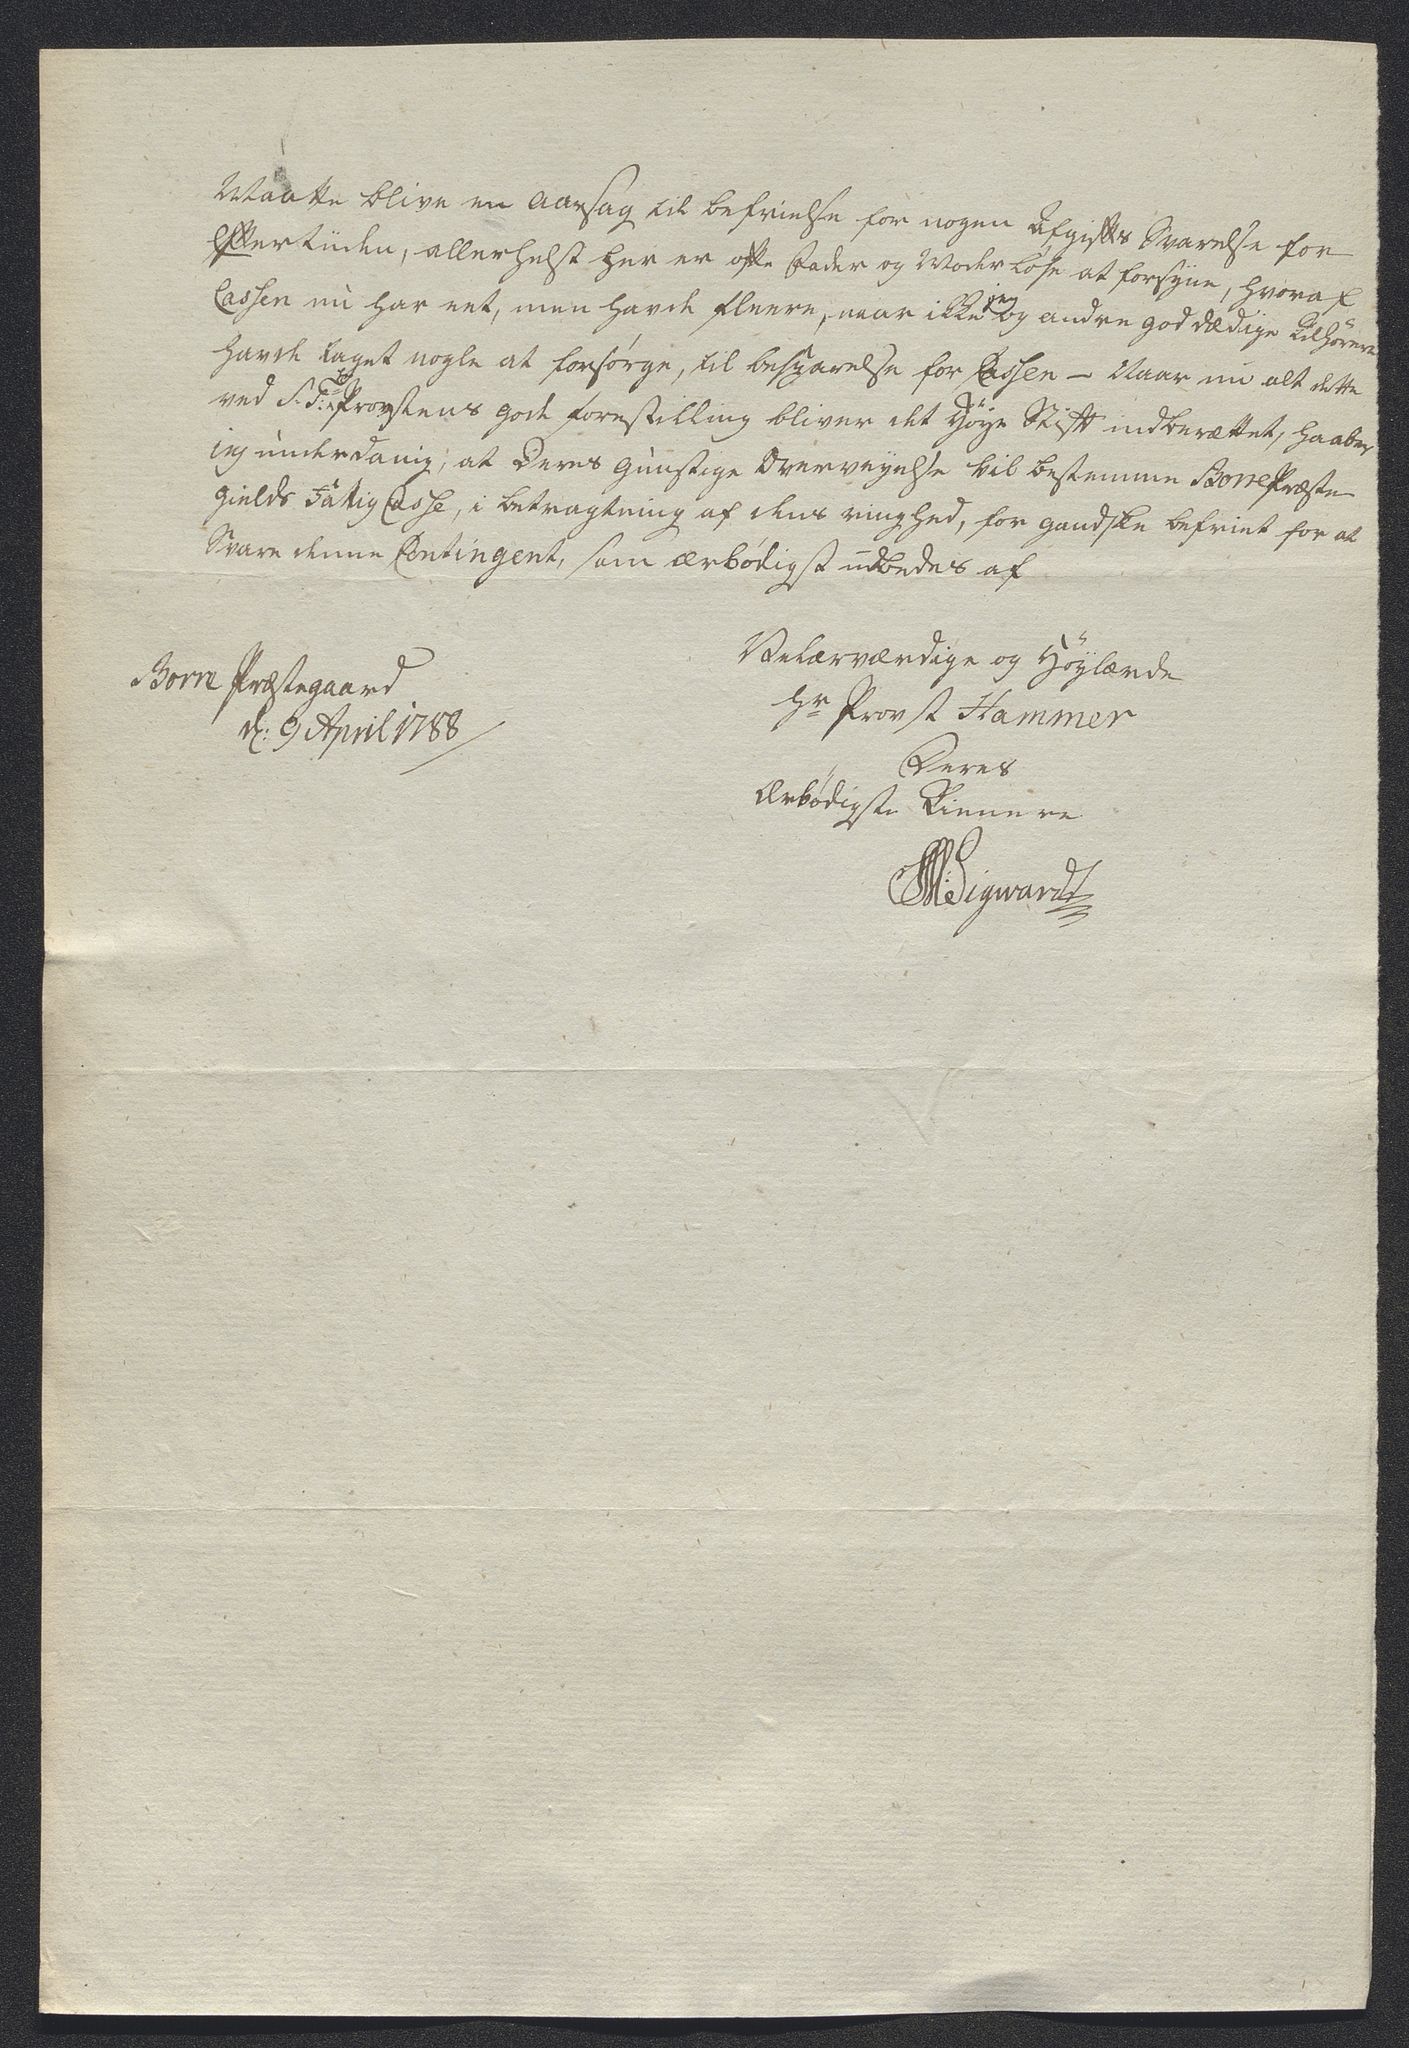 Maatte blive en Aarsag til befrielse for nogen Afgifts Svarelse for
Eftertiden, allerhelst her er ofte Fader og Moder løse at forsyne, hvoraf
Cassen nu har eet, men havde fleere, naar ikke jeg og andre goddædige Tilhörere
havde taget nogle at forsørge, til besparelse for Cassen – Naar nu alt dette
ved S: T: Hr Provstens gode forestilling bliver det Høye Stift indberættet, haaber
jeg underdanig, at Deres gunstige Overveyelse vil bestemme Borre Præste
gields Fattig Casse, i betragtning af dens ringhed, for gandske befriet for at
Svare denne Contingent, som ærbødigst udbedes af
Velærværdige og Høylærde
Hr Provst Hammer
Deres
Ærbødigste Tiennere
M: Sigwardt
Borre Præstegaard
d: 9 April 1788